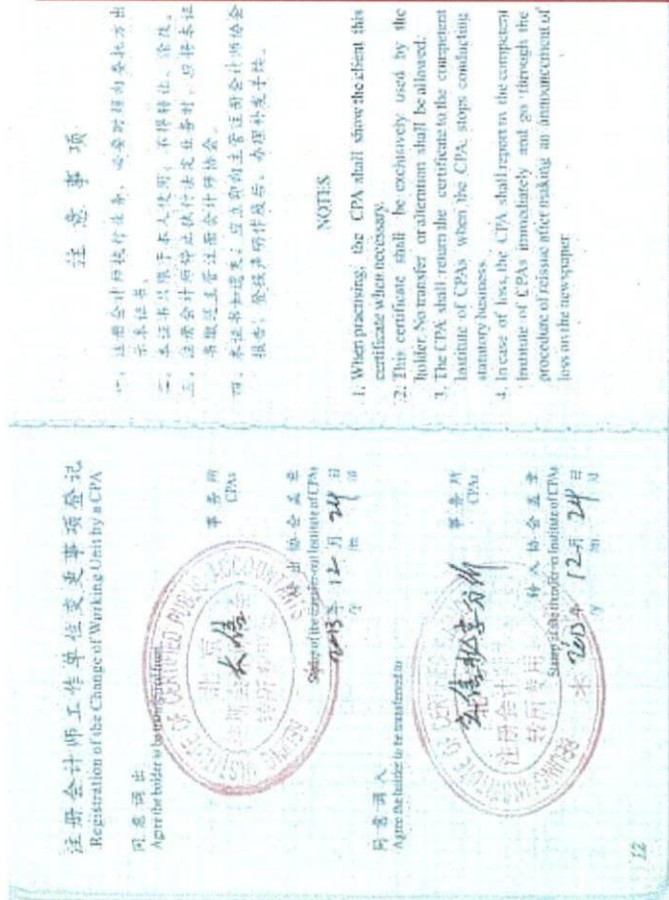 注册会计师工作单位变更事项登记
Registration of the Change of Working Unit by a CPA
同意调出
Agree the holder to be transferred from
大信
事务所
CPAs
转出协会盖章
Stamp of the transfer-out Institute of CPAs
2013年 12月 24日
同意调入
Agree the holder to be transferred to
事务所
CPAs
转入协会盖章
Stamp of the transfer-in Institute of CPAs
2013年 12月 24日
12
INSTITUTE OF CERTIFIED PUBLIC ACCOUNTANTS
BEIJING
北京
注册会计师
转所专用
BEIJING INSTITUTE OF CER
注册会计师
转所专用
注意事项
一、注册会计师执行业务，必要时须向委托方出
示本证书。
二、本证书只限于本人使用，不得转让、涂改。
三、注册会计师停止执行法定业务时，应将本证
书缴还主管注册会计师协会。
四、本证书如遗失，应立即向主管注册会计师协会
报告，登报声明作废后，办理补发手续。
NOTES
1. When practising, the CPA shall show the client this
certificate when necessary.
2. This certificate shall be exclusively used by the
holder. No transfer or alteration shall be allowed.
3. The CPA shall return the certificate to the competent
Institute of CPAs when the CPA stops conducting
statutory business.
4. In case of loss, the CPA shall report to the competent
Institute of CPAs immediately and go through the
procedure of reissue after making an announcement of
loss on the newspaper.